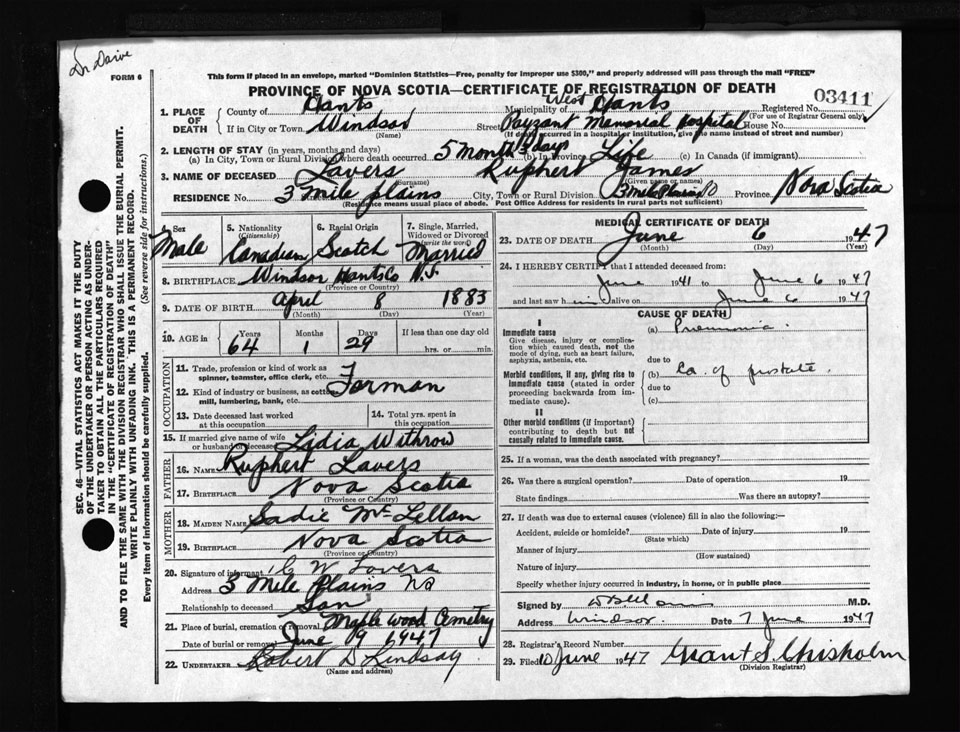 FORM 6
This form if placed in an envelope, marked "Dominion Statistics—Free, penalty for improper use $300," and properly addressed will pass through the mail "FREE"
PROVINCE OF NOVA SCOTIA—CERTIFICATE OF REGISTRATION OF DEATH
SEC. 46—VITAL STATISTICS ACT MAKES IT THE DUTY
OF THE UNDERTAKER OR PERSON ACTING AS UNDER-
TAKER TO OBTAIN ALL THE PARTICULARS REQUIRED
IN THE "CERTIFICATE OF REGISTRATION OF DEATH"
AND TO FILE THE SAME WITH THE DIVISION REGISTRAR WHO SHALL ISSUE THE BURIAL PERMIT.
WRITE PLAINLY WITH UNFADING INK. THIS IS A PERMANENT RECORD.
Every item of information should be carefully supplied. (See reverse side for instructions.)
1. PLACE OF DEATH
County of Hants Municipality of West Hants Registered No. 03411
(For use of Registrar General only)
If in City or Town Windsor Street Payzant Memorial Hospital House No.
(Name) (If death occurred in a hospital or institution, give the name instead of street and number)
2. LENGTH OF STAY (in years, months and days)
(a) In City, Town or Rural Division where death occurred 5 months 3 days (b) In Province Life (c) In Canada (if immigrant)
3. NAME OF DECEASED Lavers Ruphert James
(Surname) (Given name or names)
RESIDENCE No. 3 Mile plains City, Town or Rural Division 3 Mile Plains Province Nova Scotia
(Residence means usual place of abode. Post Office Address for residents in rural parts not sufficient)
Sex 5. Nationality (Citizenship) 6. Racial Origin 7. Single, Married, Widowed or Divorced (write the word)
Male Canadian Scotch Married
8. BIRTHPLACE Windsor Hants Co N.S.
(Province or Country)
9. DATE OF BIRTH April 8 1883
(Month) (Day) (Year)
10. AGE in Years Months Days If less than one day old
64 1 29 hrs. or min.
OCCUPATION
11. Trade, profession or kind of work as spinner, teamster, office clerk, etc.
Forman
12. Kind of industry or business, as cotton mill, lumbering, bank, etc.
13. Date deceased last worked at this occupation
14. Total yrs. spent in this occupation
15. If married give name of wife or husband of deceased Lidia Withrow
FATHER
16. NAME Ruphert Lavers
17. BIRTHPLACE Nova Scotia
(Province or Country)
MOTHER
18. MAIDEN NAME Sadie McLellan
19. BIRTHPLACE Nova Scotia
(Province or Country)
20. Signature of informant W Lavers
Address 3 Mile plains NS
Relationship to deceased Son
21. Place of burial, cremation or removal Maplewood Cemetry
Date of burial or removal June 9 1947
22. UNDERTAKER Robert D Lindsay
(Name and address)
MEDICAL CERTIFICATE OF DEATH
23. DATE OF DEATH June 6 1947
(Month) (Day) (Year)
24. I HEREBY CERTIFY that I attended deceased from:
June 1941 to June 6 1947
and last saw him alive on June 6 1947
CAUSE OF DEATH
I
Immediate cause (a) Pneumonia.
Give disease, injury or complication which caused death, not the mode of dying, such as heart failure, asphyxia, asthenia, etc.
due to
Morbid conditions, if any, giving rise to immediate cause (stated in order proceeding backwards from immediate cause).
(b) Ca. of prostate.
due to
(c)
II
Other morbid conditions (if important) contributing to death but not causally related to immediate cause.
25. If a woman, was the death associated with pregnancy?
26. Was there a surgical operation? Date of operation 19
State findings Was there an autopsy?
27. If death was due to external causes (violence) fill in also the following:—
Accident, suicide or homicide? Date of injury 19
(State which)
Manner of injury
(How sustained)
Nature of injury
Specify whether injury occurred in industry, in home, or in public place
Signed by M.D.
Address Windsor. Date 7 June 1947
28. Registrar's Record Number
29. Filed 10 June 1947 Grant S. Chisholm
(Division Registrar)